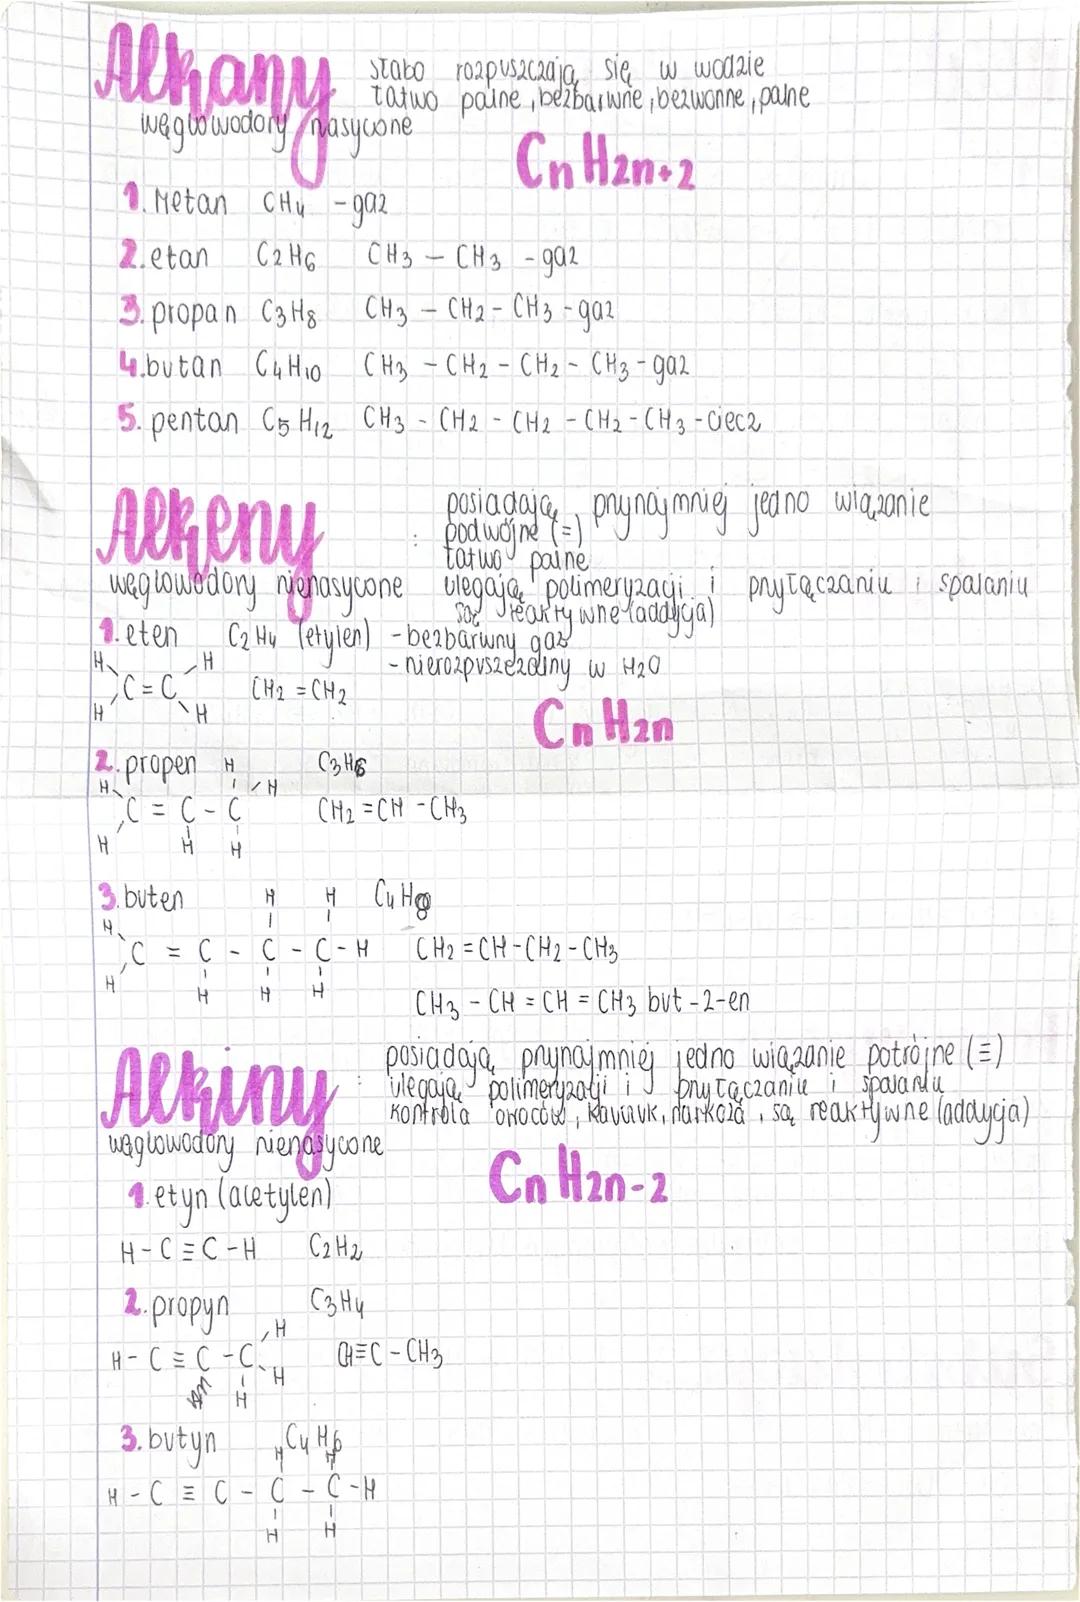 Alkany
słabo rozpuszczają się w wodzie
łatwo palne, bezbarwne, bezwonne, palne
węglowodory nasycone
CnH2n+2
1. Metan CH4 - gaz
2. etan C2H6 CH3 - CH3 - gaz
3. propan C3H8 CH3 - CH2 - CH3 - gaz
4. butan C4H10 CH3 - CH2 - CH2 - CH3 - gaz
5. pentan C5H12 CH3 - CH2 - CH2 - CH2 - CH3 - ciecz
Alkeny
: posiadają przynajmniej jedno wiązanie
podwójne (=)
łatwo palne
węglowodory nienasycone
ulegają polimeryzacji i przyłączaniu i spalaniu
są reaktywne (addycja)
1. eten C2H4 (etylen) - bezbarwny gaz
- nierozpuszczalny w H2O
H H
C = C CH2 = CH2
H H
CnH2n
2. propen H C3H6
H H
C = C - C CH2 = CH - CH3
H H H
3. buten H H C4H8
H
C = C - C - C - H CH2 = CH - CH2 - CH3
H H H H
CH3 - CH = CH = CH3 but-2-en
Alkiny
: posiadają przynajmniej jedno wiązanie potrójne (≡)
ulegają polimeryzacji i przyłączaniu i spalaniu
kontrola owoców, kauczuk, narkoza, są reaktywne (addycja)
węglowodory nienasycone
CnH2n-2
1. etyn (acetylen)
H - C ≡ C - H C2H2
2. propyn C3H4
H
H - C ≡ C - C CH≡C - CH3
H
H
3. butyn C4H6
H H
H - C ≡ C - C - C - H
H H